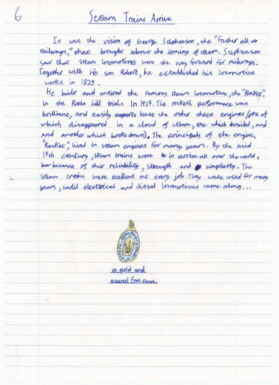 6
Steam Trains Arrive
It was the vision of George Stephenson, the "Father of
railways," that brought about the coming of steam. Stephenson
saw that steam locomotives was the way forward for railways.
Together with his son Robert, he established his locomotive
works in 1823.
He built and entered the famous steam locomotive, the "Rocket",
in the Rain hill trials in 1829. The rockets performance was
brilliant, and easily the other three engines (one of
which disappeared in a cloud of steam, one which and
and another which broke down), The principals of the engine,
"Rocket", lived in steam engines for many years. By the mid
19th century, steam trains were to in over the world,
because of their reliability, strength and simplicity. The
steam were one every job. They were used for many
years, until electrical and diesel locomotives came along...
in gold and
enamel